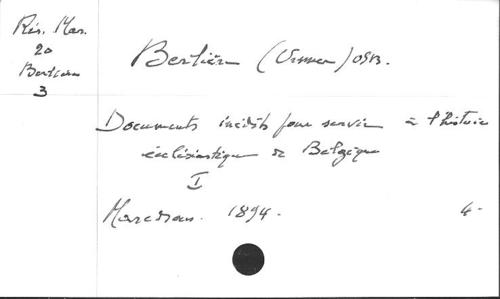 Rés. Mar.
20
Berlière
3
Berlière (Ursmer) OSB.
Documents inédits pour servir à l'histoire
ecclésiastique de Belgique
I
Maredsous. 1894. 4.